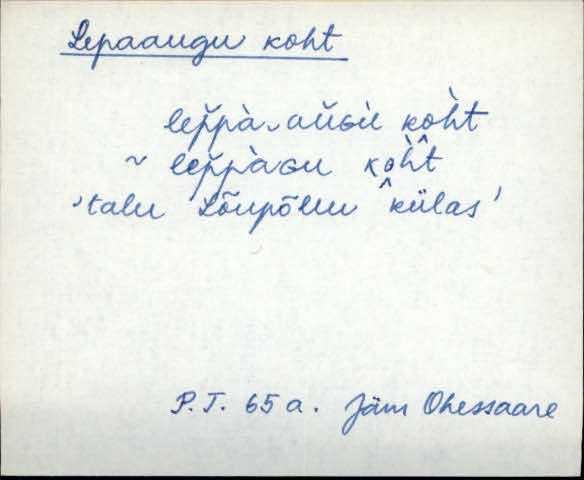 Lepaaugu koht
lep̆pà-aŭGù kòh̀t
~ lep̆pàGu kòh̀t
'talu Lõupõllu külas'
P.T. 65 a. Jäm Ohessaare